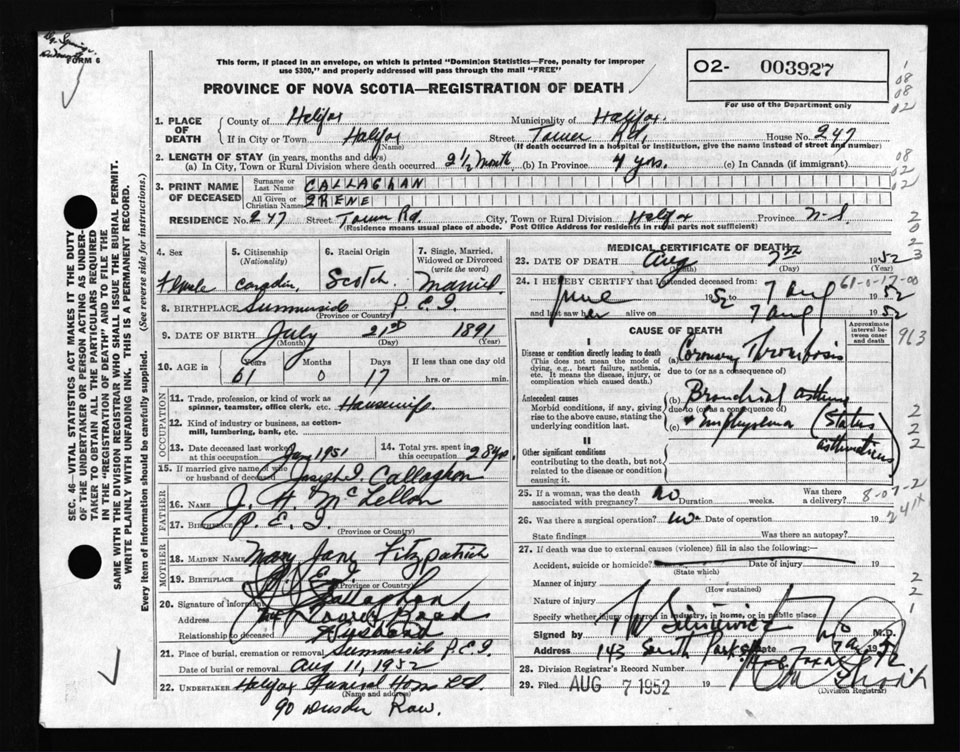 FORM 6
This form, if placed in an envelope, on which is printed "Dominion Statistics—Free, penalty for improper
use $300," and properly addressed will pass through the mail "FREE"
PROVINCE OF NOVA SCOTIA—REGISTRATION OF DEATH
O2- 003927
For use of the Department only
SEC. 46—VITAL STATISTICS ACT MAKES IT THE DUTY
OF THE UNDERTAKER OR PERSON ACTING AS UNDER-
TAKER TO OBTAIN ALL THE PARTICULARS REQUIRED
IN THE "REGISTRATION OF DEATH" AND TO FILE THE
SAME WITH THE DIVISION REGISTRAR WHO SHALL ISSUE THE BURIAL PERMIT.
WRITE PLAINLY WITH UNFADING INK. THIS IS A PERMANENT RECORD.
Every item of information should be carefully supplied. (See reverse side for instructions.)
1. PLACE OF DEATH
County of Halifax Municipality of Halifax
If in City or Town Halifax Street Tower Rd. House No. 247
(Name) (If death occurred in a hospital or institution, give the name instead of street and number)
2. LENGTH OF STAY (in years, months and days)
(a) In City, Town or Rural Division where death occurred 2 1/2 month (b) In Province 4 yrs. (c) In Canada (if immigrant)
3. PRINT NAME OF DECEASED
Surname or Last Name CALLAGHAN
All Given or Christian Names IRENE
RESIDENCE No. 247 Street Tower Rd. City, Town or Rural Division Halifax Province N-S
(Residence means usual place of abode. Post Office Address for residents in rural parts not sufficient)
4. Sex
Female
5. Citizenship (Nationality)
6. Racial Origin
Scotch
7. Single, Married, Widowed or Divorced (write the word)
Married
8. BIRTHPLACE Summerside P.E.I
(Province or Country)
9. DATE OF BIRTH July 21st 1891
(Month) (Day) (Year)
10. AGE in Years Months Days If less than one day old
61 0 17 hrs. or min.
OCCUPATION
11. Trade, profession, or kind of work as
spinner, teamster, office clerk, etc. Housewife
12. Kind of industry or business, as cotton-
mill, lumbering, bank, etc.
13. Date deceased last worked at this occupation 1951
14. Total yrs. spent in this occupation
15. If married give name of wife or husband of deceased Joseph I. Callaghan
FATHER
16. NAME J. H. McLellan
17. BIRTHPLACE P.E.I
(Province or Country)
MOTHER
18. MAIDEN NAME Mary Jane Fitzpatrick
19. BIRTHPLACE P.E.I
(Province or Country)
20. Signature of informant Callaghan
Address Tower Road
Relationship to deceased Husband
21. Place of burial, cremation or removal Summerside P.E.I
Date of burial or removal Aug 11, 1952
22. UNDERTAKER Halifax Funeral Home Ltd.
(Name and address)
90
MEDICAL CERTIFICATE OF DEATH
23. DATE OF DEATH Aug 7th 1952
(Month) (Day) (Year)
24. I HEREBY CERTIFY that I attended deceased from:
June 1952 to 7 Aug 1952
and last saw her alive on 7 Aug 1952
CAUSE OF DEATH
Approximate interval between onset and death
I
Disease or condition directly leading to death
(This does not mean the mode of
dying, e.g., heart failure, asthenia,
etc. It means the disease, injury, or
complication which caused death.)
(a) Coronary Thrombosis
due to (or as a consequence of)
Antecedent causes
Morbid conditions, if any, giving
rise to the above cause, stating the
underlying condition last.
(b) Bronchial asthma
due to (or as a consequence of)
(c) + Emphysema (Status
asthmaticus)
II
Other significant conditions
contributing to the death, but not
related to the disease or condition
causing it.
25. If a woman, was the death associated with pregnancy? no Duration weeks. Was there a delivery?
26. Was there a surgical operation? no Date of operation 19
State findings Was there an autopsy?
27. If death was due to external causes (violence) fill in also the following:—
Accident, suicide or homicide? Date of injury 19
(State which)
Manner of injury
(How sustained)
Nature of injury
Specify whether injury occurred in industry, in home, or in public place.
Signed by M.D.
Address 143 South Park Date 7 Aug 52
Halifax
28. Division Registrar's Record Number
29. Filed AUG 7 1952 19
(Division Registrar)